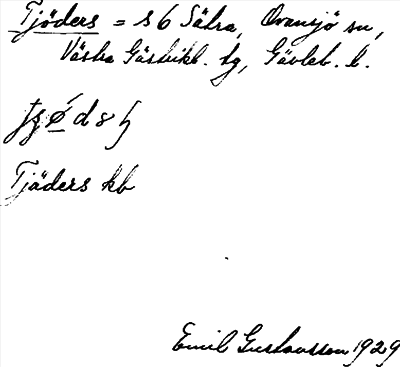 Tjöders = s 6 Säkra, Ovansjö sn,
Västra Gästrikl. tg, Gävleb. l.
Tjäders kb
Emil Gustavsson 1929